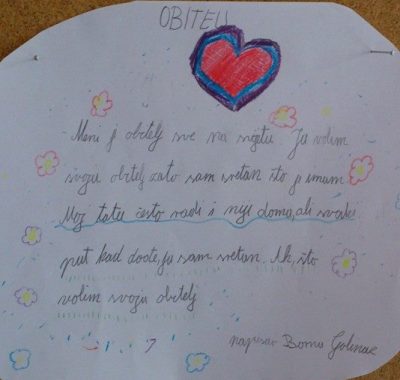 OBITELJ
Meni je obitelj sve na svijetu. Ja volim
svoju obitelj zato sam sretan što je imam
Moj tata često radi i nije doma, ali svaki
put kad dođe, ja sam sretan. Ah, što
volim svoju obitelj
napisao Borna